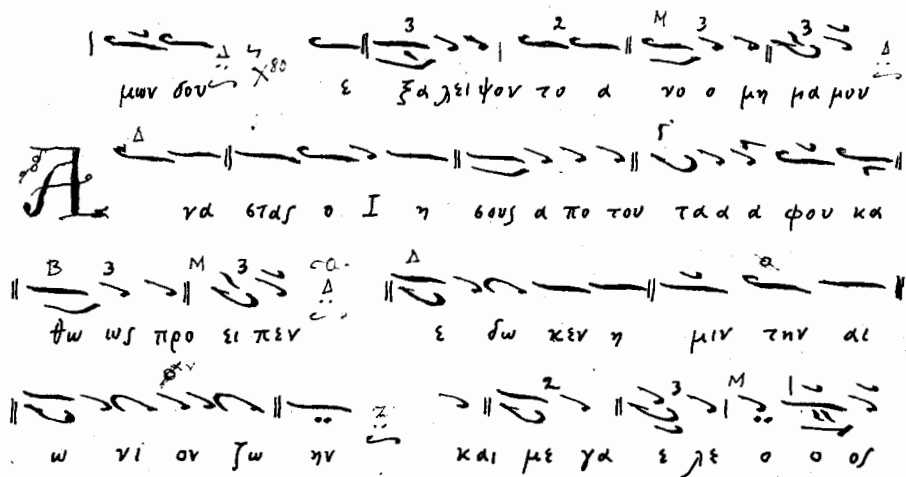 μων σου ε ξα λει ψον το α νο ο μη μα μου
Α να στας ο Ι η σους α πο του τα α α φου κα
θω ως προ ει πεν ε δω κεν η μιν την αι
ω νι ον ζω ην και με γα ε λε ο ο ος